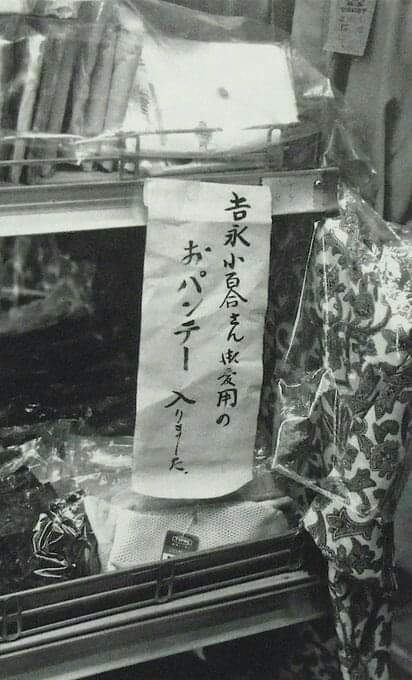 吉永小百合さん御愛用の
おパンテー
入りました、